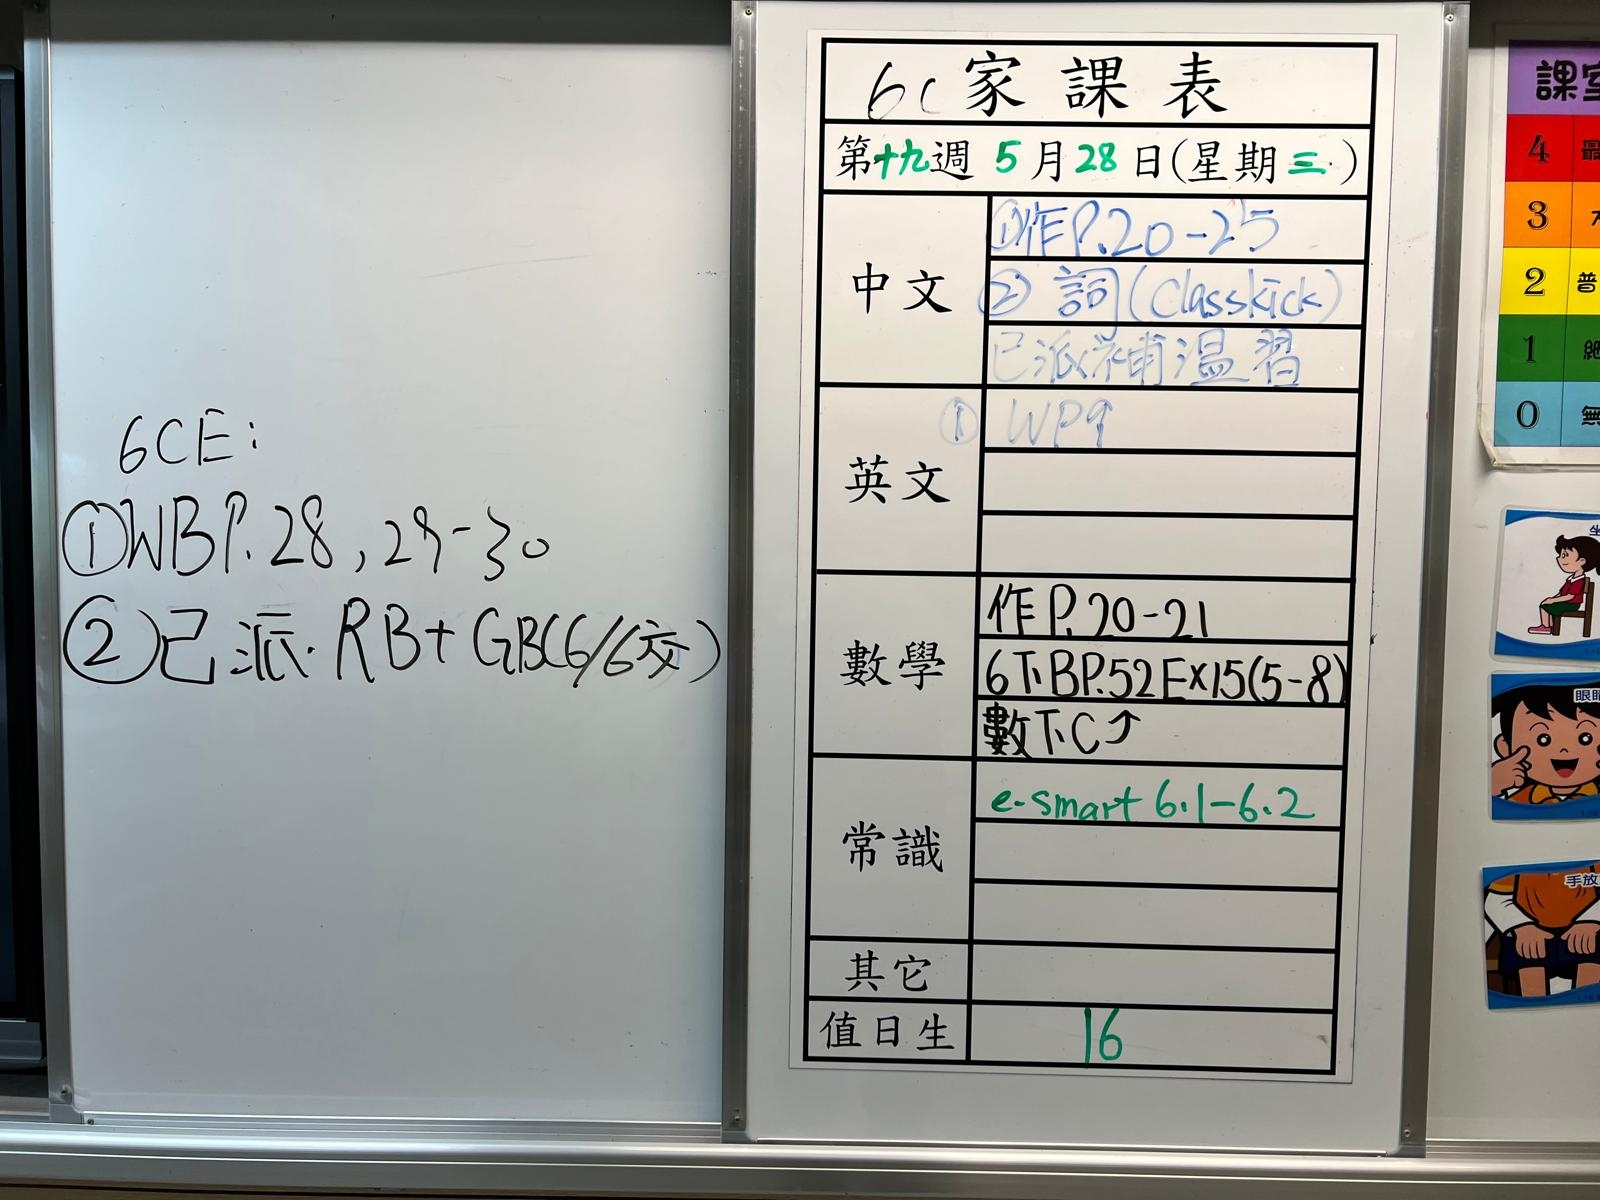 6CE:
①WBP.28,29-30
②已派.RB+GB(6/6交)
6C家課表
第十九週 5月28日(星期三)
中文
①作P.20-25
② 詞(Classkick)
已派補溫習
英文
① WP9
數學
作P.20-21
6下BP.52Ex15(5-8)
數下C⤴
常識
e-smart 6.1-6.2
其它
值日生
16
課室
4 最
3
2 普
1 細
0 無
坐
眼睛
手放